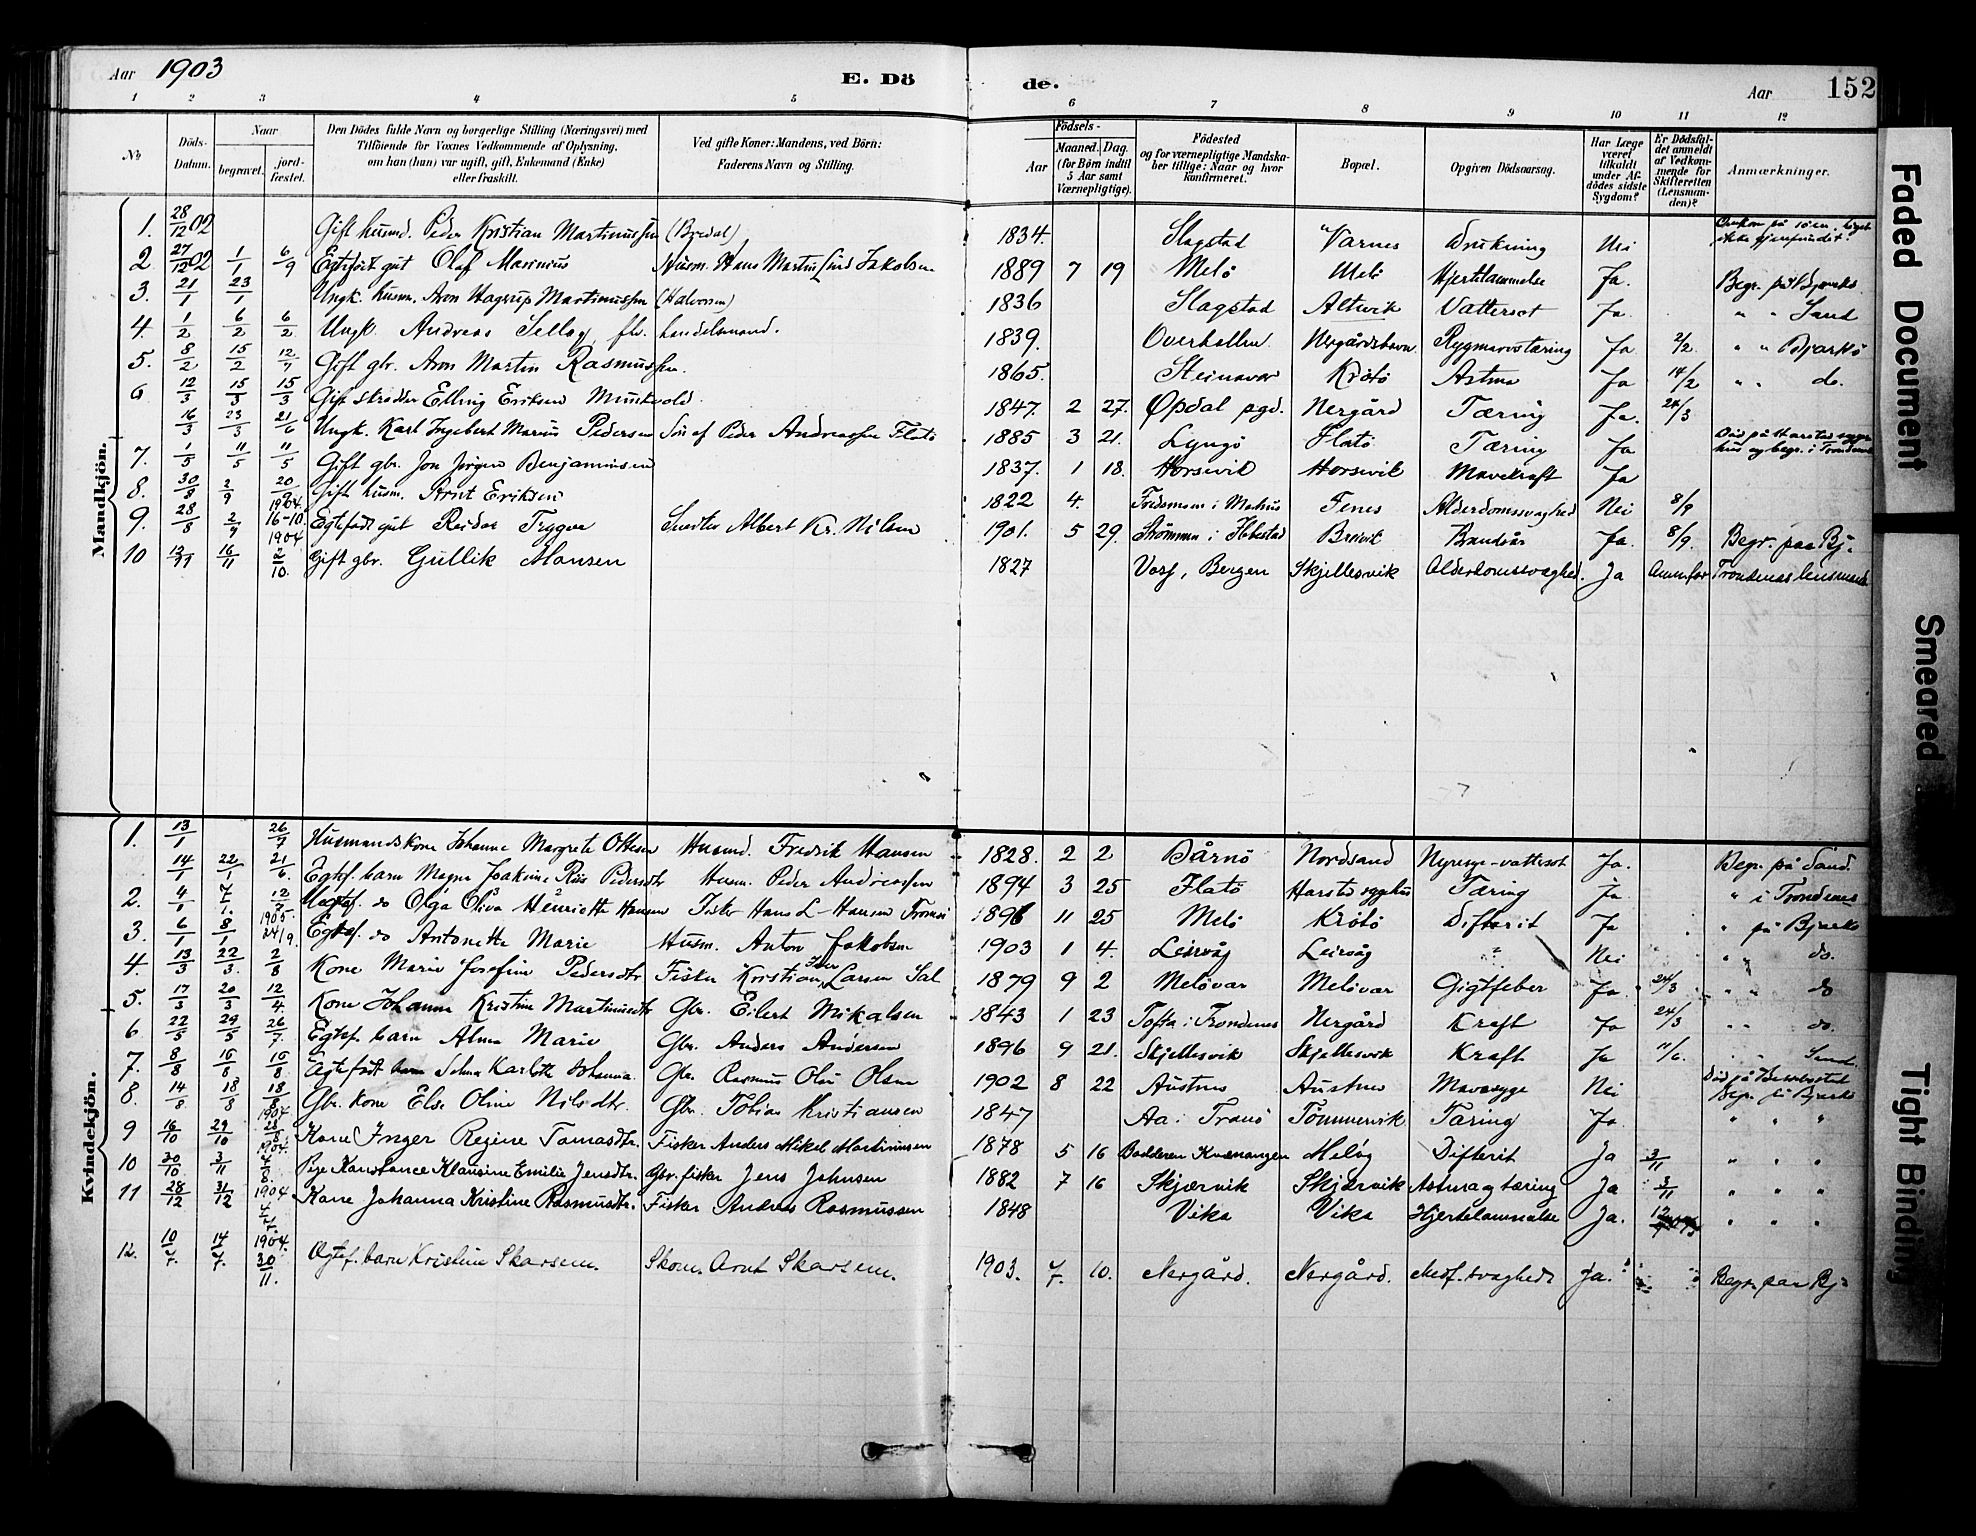 Aar 1903 E. Dö de. Aar 152
1 2 3 4 5 6 7 8 9 10 11 12
№ Döds-Datum. Naar begravet. jord-fæstet. Den Dödes fulde Navn og borgerlige Stilling (Næringsvei) med Tilföiende for Voxnes Vedkommende af Oplysning, om han (hun) var ugift, gift, Enkemand (Enke) eller fraskilt. Ved gifte Koner: Mandens, ved Börn: Faderens Navn og Stilling. Födsels- Aar Maaned. Dag. (for Börn indtil 5 Aar samt Værnepligtige). Födested og for værnepligtige Mandskaber tillige: Naar og hvor konfirmeret. Bopæl. Opgiven Dödsaarsag. Har Læge været tilkaldt under Afdödes sidste Sygdom? Er Dödsfaldet anmeldt af Vedkommende for Skifteretten (Lensmanden)? Anmærkninger.
Mandkjön.
1. 28/12 02 Gift husmd. Peder Kristian Martinussen (Bredal) 1834. Slagstad Varnes Drukning Nei
2. 27/12 02 1/1 6/9 Egtefödt gut Olaf Marinius Husm. Hans Martin Lind Jakobsen 1889 7 19 Melö Melö Hjertelammelse Ja. Begr. på Bjarkö
3. 21/1 23/1 Ungk. husm. Aron Hagerup Martinussen (Halvorsen) 1836 Slagstad Altevik Vattersot Ja. " " Sand
4. 1/2 6/2 6/2 Ungk. Andreas Selbey fhv. handelsmand. 1839. Overhallen Nergårdshavn Rygmarvstæring Ja 2/2. " " Bjarkö
5. 8/2 15/2 12/7 Gift gbr. Aron Martin Rasmussen. 1865. Steinavær Krötö Astma Ja 14/2 " " do.
6 12/3 15/3 15/3 Gift skrædder Elling Eriksen Muntvold. 1847. 2 27. Opdal pgd. Nergård Tæring Ja. 24/3
16/3 23/3 21/6 Ungk. Karl Ingebert Marius Pedersen Sön af Peder Andreassen Flatö 1885 3 21. Lyngö Flatö Tæring Ja Död på Harstad sygehus og begr. i Trondenes
7. 1/5 11/5 11/5 Gift gbr. Jon Jörgen Benjaminsen 1837. 1 18. Horsevik Horsevik Mavekræft Ja
8. 30/8 2/9 20/9 1904. Gift husm. Arnt Eriksen 1822 4. Fenes Alderdomssvaghed Nei 8/9
9. 28/8 2/9 16-10 1904 Egtefödt gut Reidar Trygve Albert Kr. Nilsen 1901. 5 29. Strömmen i Ibbestad Breivik Brandsår Ja. 8/9. Begr. paa Bj.
10 12/11 16/11 2/10. Gift gbr. Gullik Hansen 1827 Vors, Bergen Skjellesvik Alderdomssvaghed. Ja Anm. for Trondenæs lensmand
Kvindekjön.
1. 13/1 26/7 Husmandskone Johanne Margrete Ottesen Husmd. Fredrik Hansen 1828. 2 2 Bårnö Nordsand Nyresyge-vattersot Ja. Begr. på Sand
14/1 22/1 21/6 Egtef. barn Magna Joakime Riis Pedersdtr Husm. Peder Andreassen 1894 3 25 Flatö Harstad sygehus Tæring Ja. " i Trondenes
2. 4/1 7/1. 12/7 1905. Uegtef. do Olga Oliva Henriette Hansen Fisker Hans L. Hansen Tromsö 1896 11 25 Melö Krötö Difterit Ja " på Bjarkö
3. 6/1 8/1 24/9. Egtef. do Antonette Marie Husm. Anton Jakobsen 1903 1 4. Leirvåg Leirvåg ? Nei " " do.
4. 13/3 22/3. 2/8 Kone Marie Josefine Pedersdtr Fisker Kristian Larsen Sal 1879 9 2 Melövær Melövær Gigtfeber Ja. 24/3 " " do
5. 17/3 20/3 12/4. Kone Johanna Kristine Martinusdtr Gbr. Eilert Mikalsen 1843 1 23 Tofta i Trondenes Nergård Kræft Ja 24/3 " " do.
6. 22/5 29/5 26/7. Egtef. barn Alma Marie Gbr. Anders Andersen 1896 9 21. Skjellesvik Skjellesvik Kræft Ja 11/6. " " Sand
7. 8/8 16/8 16/8. Egtefödt barn Selma Karlotte Johanna. Gbr. Rasmus Olai Olsen 1902 8 22 Austnes Austnes Mavesyge Nei
8. 14/8. 18/8 18/8 1904 Gbr. kone Else Oline Nilsdtr. Gbr. Tobias Kristiansen 1847 Aa i Tranö Tömmervik Tæring Ja. " " "
9 16/10 29/10 28/8 1904. Kone Inger Regine Tomasdtr. Fisker Anders Mikal Martinusen 1878 5 16 Badderen Kvænangen Melöy Difterit Ja 3/11 " " "
10 30/10 3/11 4/9 1904 Pige Konstance Klausine Emilie Jensdtr. Gbr. fisker Jens Johnsen 1882 7 16 Skjærvik Skjærvik Astma og tæring Ja 3/11 " " "
11 28/12 31/12 4/4. 1904. Kone Johanna Kristine Rasmusdtr. Fisker Andreas Rasmussen 1848 Vika Vika Hjertelammelse Ja. " " "
12. 10/7. 14/7. 30/11. Ægtef. barn Kristine Skarsem. Skom. Arnt Skarsem. 1903. 4/7 10. Nergård. Nergård. Medf. svaghed Ja. Begr. paa Bj.
Faded Document
Smeared
Tight Binding